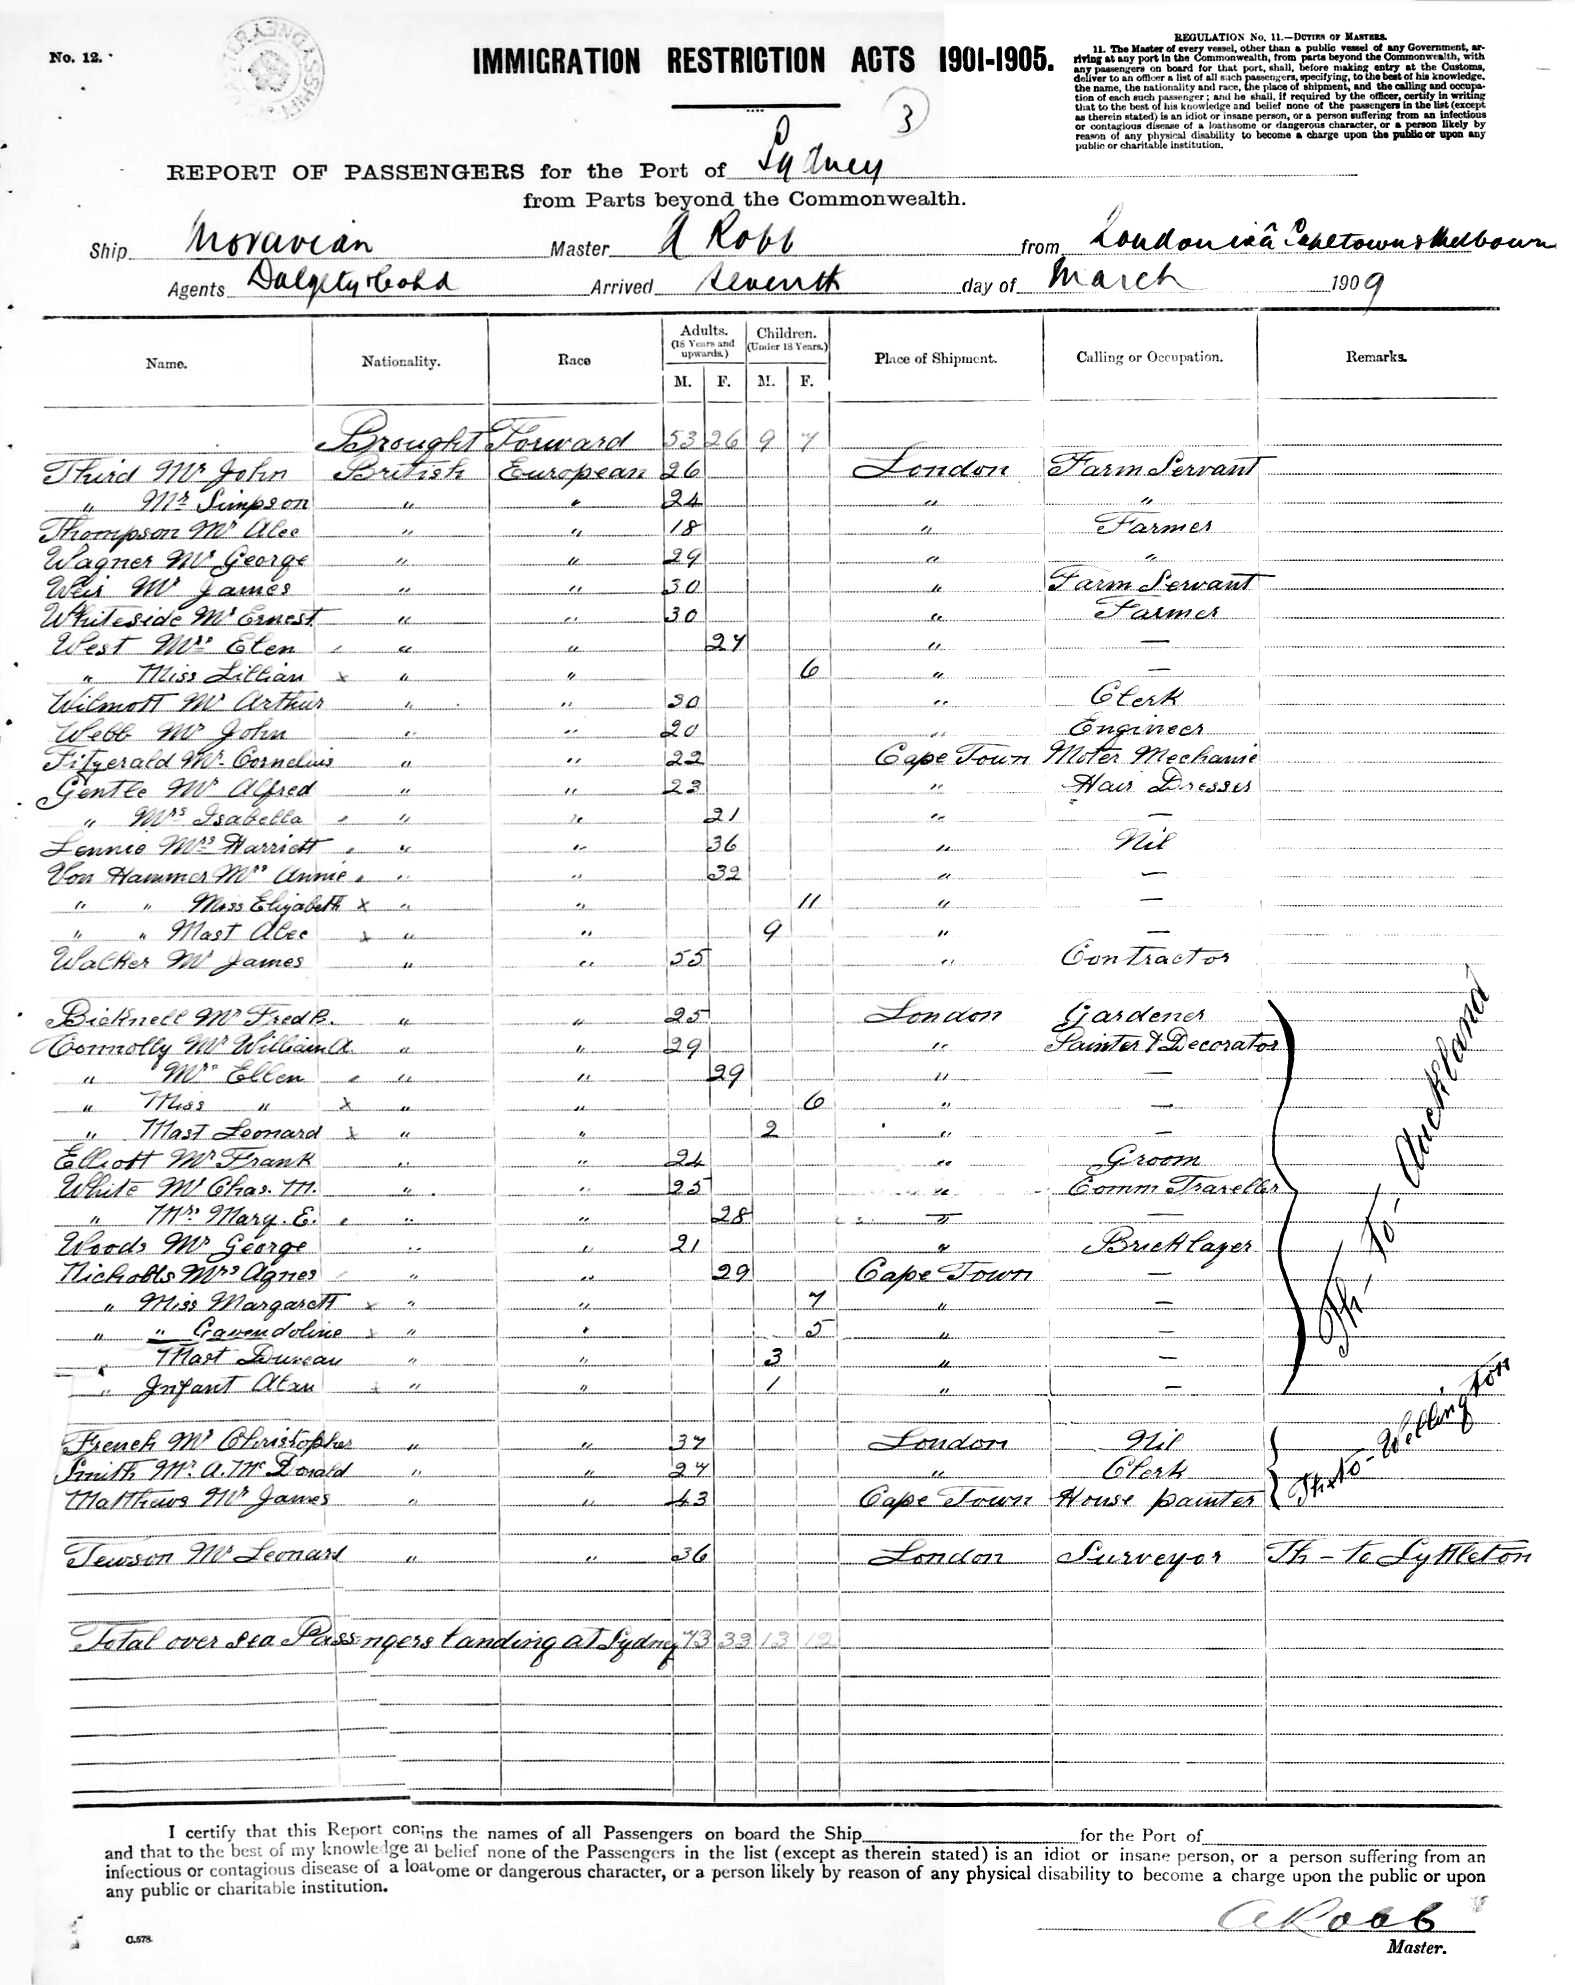 No. 12.
IMMIGRATION RESTRICTION ACTS 1901-1905.
3
REGULATION No. 11.—DUTIES OF MASTERS.
11. The Master of every vessel, other than a public vessel of any Government, ar-
riving at any port in the Commonwealth, from parts beyond the Commonwealth, with
any passengers on board for that port, shall, before making entry at the Customs,
deliver to an officer a list of all such passengers, specifying, to the best of his knowledge,
the name, the nationality and race, the place of shipment, and the calling and occupa-
tion of each such passenger; and he shall, if required by the officer, certify in writing
that to the best of his knowledge and belief none of the passengers in the list (except
as therein stated) is an idiot or insane person, or a person suffering from an infectious
or contagious disease of a loathsome or dangerous character, or a person likely by
reason of any physical disability to become a charge upon the public or upon any
public or charitable institution.
REPORT OF PASSENGERS for the Port of Sydney
from Parts beyond the Commonwealth.
Ship Moravian Master A Robb from London via Capetown & Melbourn
Agents Dalgety & Co Ltd Arrived seventh day of March 1909
Name. Nationality. Race Adults. (18 Years and upwards.) Children. (Under 18 Years.) Place of Shipment. Calling or Occupation. Remarks.
M. F. M. F.
Brought Forward 53 26 9 7
Third Mr John British European 26 London Farm Servant
" Mr Simpson " " 24 " "
Thompson Mr Alec " " 18 " Farmer
Wagner Mr George " " 29 " "
Weir Mr James " " 30 " Farm Servant
Whiteside Mr Ernest " " 30 " Farmer
West Mrs Elen " " 27 " —
" Miss Lillian x " " 6 " —
Wilmott Mr Arthur " " 30 " Clerk
Webb Mr John " " 20 " Engineer
Fitzgerald Mr Cornelius " " 22 Cape Town Moter Mechanic
Gentle Mr Alfred " " 23 " Hair Dresser
" Mrs Isabella " " 21 " —
Lennie Mrs Harriett " " 36 " Nil
Von Hammer Mrs Annie " " 32 " —
" " Miss Elizabeth x " " 11 " —
" " Mast Alec x " " 9 " —
Walker Mr James " " 55 " Contractor
Bicknell Mr Fredk. " " 25 London Gardener
Connolly Mr William A. " " 29 " Painter & Decorator
" Mrs Ellen " " 29 " —
" Miss " x " " 6 " —
" Mast Leonard x " " 2 " —
Elliott Mr Frank " " 24 " Groom
White Mr Chas. M. " " 25 " Comm Traveller
" Mrs Mary. E. " " 28 " —
Woods Mr George " " 21 " Bricklayer
Nicholls Mrs Agnes " " 29 Cape Town —
" Miss Margarett x " " 7 " —
" " Gwendoline x " " 5 " —
" Mast Duncan " " 3 " —
" Infant Alan x " " 1 " —
Th- to- Auckland
French Mr Christopher " " 37 London Nil
Smith Mr A. McDonald " " 27 " Clerk
Matthews Mr James " " 43 Cape Town House painter
to- Wellington
Tewson Mr Leonard " " 36 London Surveyor Th- to Lyttleton
Total over sea Passengers landing at Sydney 73 33 13 12
I certify that this Report conins the names of all Passengers on board the Ship for the Port of
and that to the best of my knowledge at belief none of the Passengers in the list (except as therein stated) is an idiot or insane person, or a person suffering from an
infectious or contagious disease of a loatome or dangerous character, or a person likely by reason of any physical disability to become a charge upon the public or upon
any public or charitable institution.
A Robb
C.578.
Master.